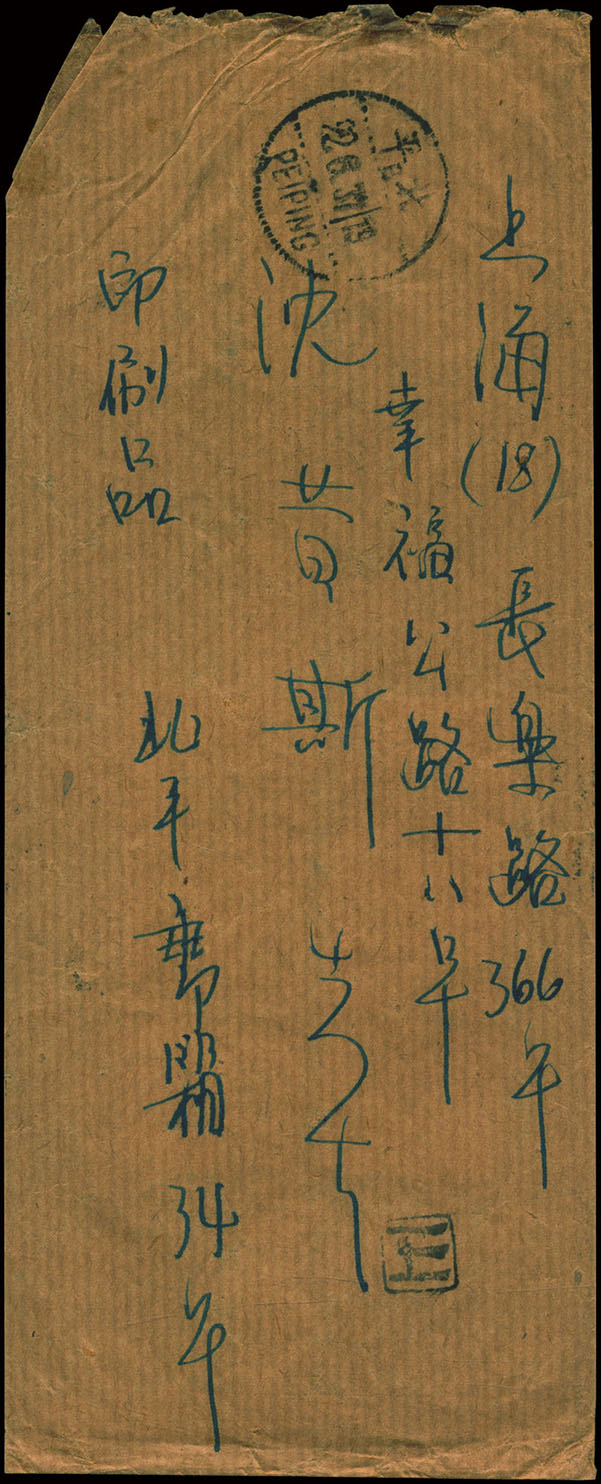 上海(18)長樂路366号
幸福公路十八号
沈昔斯先生
印刷品
北平 34号
北平
22.6.37
PEIPING